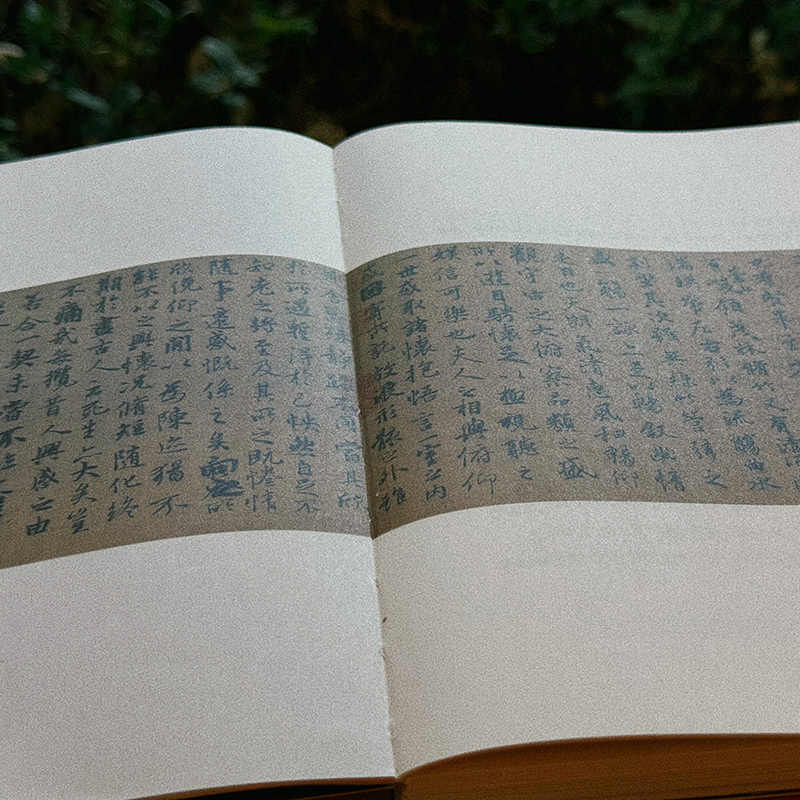 峻領茂林脩竹又有清流激
湍暎帶左右引以為流觴曲水
列坐其次雖無絲竹管弦之
盛一觴一詠亦足以暢敘幽情
是日也天朗氣清惠風和暢仰
觀宇宙之大俯察品類之盛
所以遊目騁懷足以極視聽之
娛信可樂也夫人之相與俯仰
一世或取諸懷抱悟言一室之內
或因寄所託放浪形骸之外雖
舍萬殊靜躁不同當其欣
於所遇暫得於己怏然自足不
知老之將至及其所之既惓情
隨事遷感慨係之矣向之所
欣俛仰之閒以為陳迹猶不
能不以之興懷況脩短隨化終
期於盡古人云死生亦大矣豈
不痛哉每攬昔人興感之由
若合一契未嘗不臨文